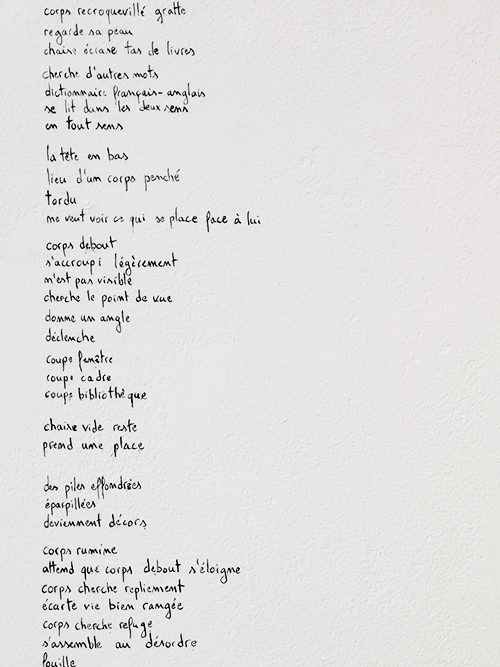 corps recroquevillé gratte
regarde sa peau
chaise écrase tas de livres
cherche d'autres mots
dictionnaire français-anglais
se lit dans les deux sens
en tout sens
la tête en bas
lieu d'un corps penché
tordu
ne veut voir ce qui se place face à lui
corps debout
s'accroupi légèrement
n'est pas visible
cherche le point de vue
donne un angle
déclenche
coupe fenêtre
coupe cadre
coupe bibliothèque
chaise vide reste
prend une place
des piles effondrées
éparpillées
deviennent décors
corps rumine
attend que corps debout s'éloigne
corps cherche repliement
écarte vie bien rangée
corps cherche refuge
s'assemble au désordre
fouille